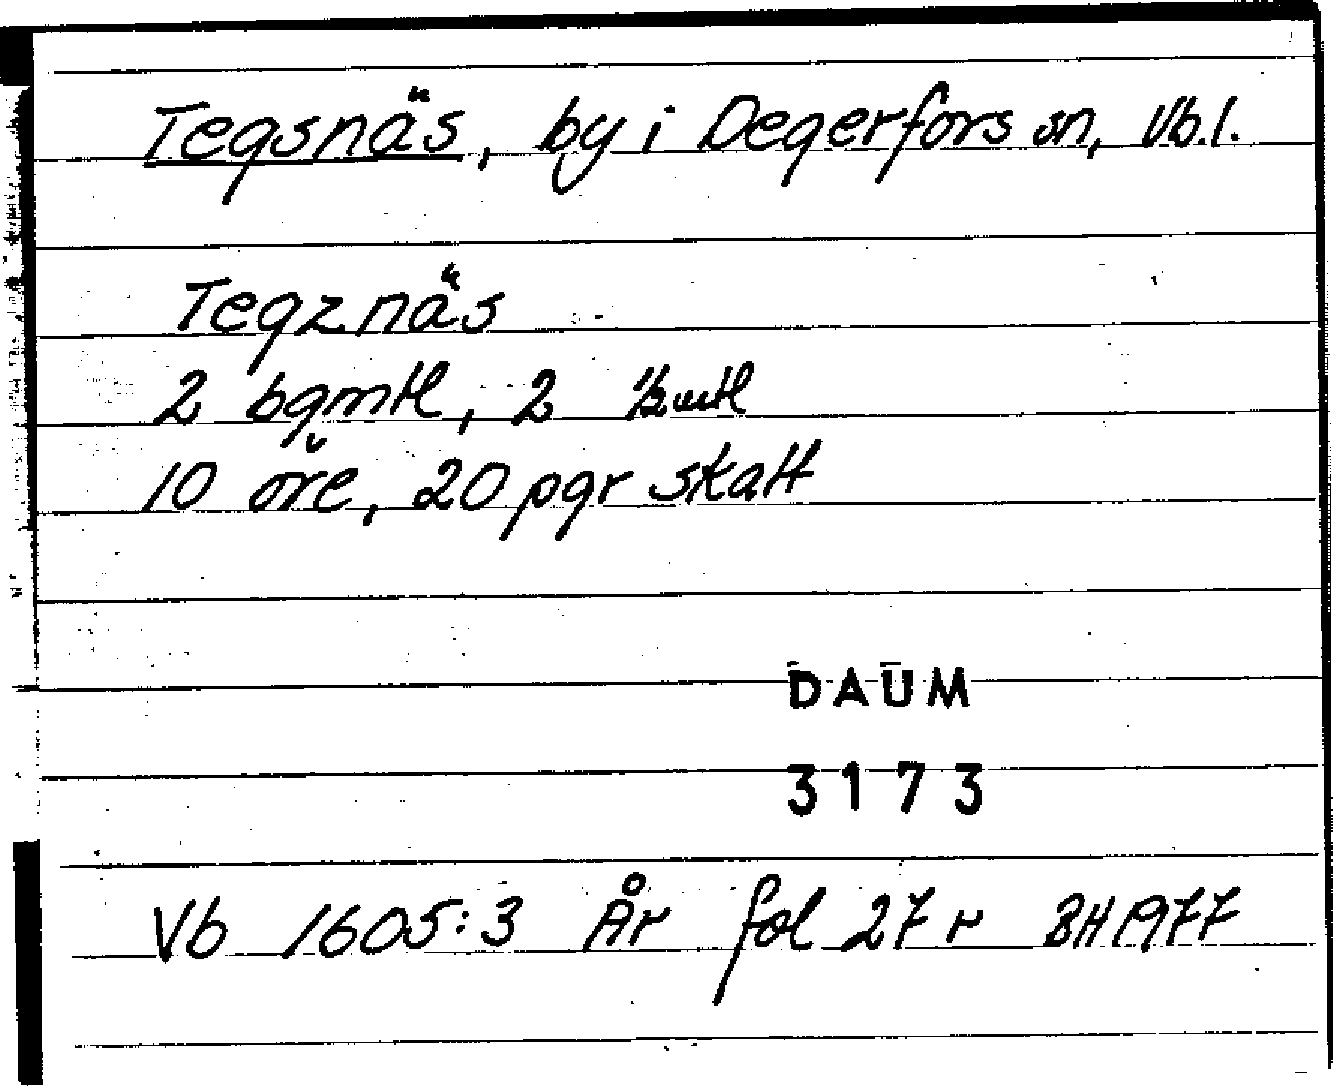 Tegsnäs, by i Degerfors sn, Vb.l.
Tegznäs
2 bgmtl, 2 ½mtl
10 öre, 20 pgr skatt
DAUM
3173
Vb 1605:3 År fol 27 r BH 1977